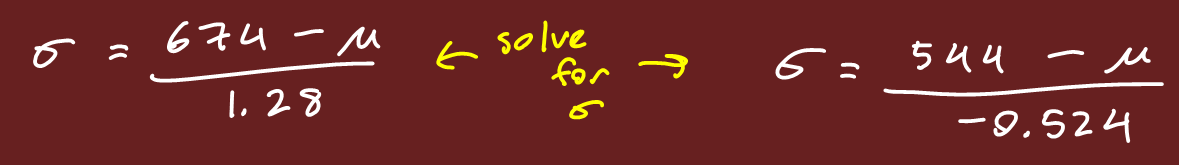 σ = (674 - μ) / 1.28 ← solve for σ → σ = (544 - μ) / -0.524